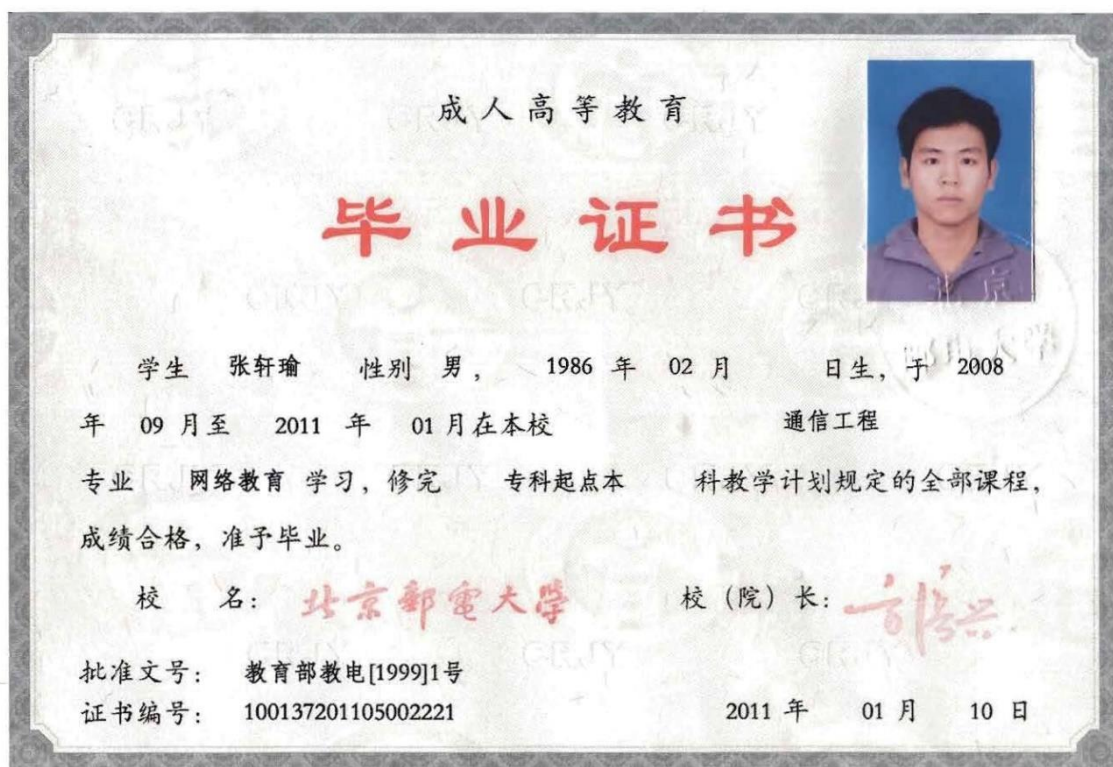 成人高等教育
毕业证书
学生 张轩瑜 性别 男， 1986 年 02 月 日生，于 2008
年 09 月至 2011 年 01 月在本校 通信工程
专业 网络教育 学习，修完 专科起点本 科教学计划规定的全部课程，
成绩合格，准予毕业。
校 名： 北京郵電大學 校（院）长：
批准文号： 教育部教电[1999]1号
证书编号： 100137201105002221 2011 年 01 月 10 日